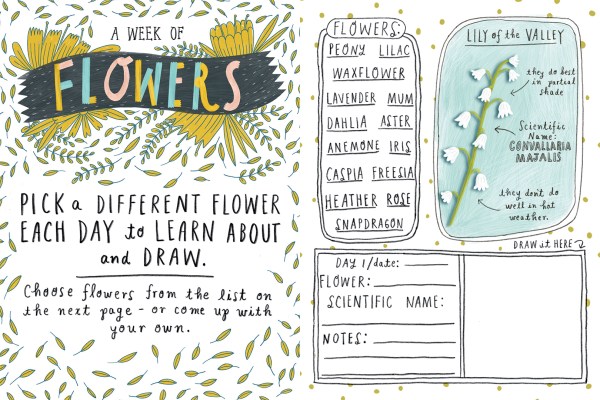 A WEEK OF
FLOWERS
PICK a DIFFERENT FLOWER
EACH DAY to LEARN ABOUT
and DRAW.
Choose flowers from the list on
the next page - or come up with
your own.
FLOWERS:
PEONY LILAC
WAXFLOWER
LAVENDER MUM
DAHLIA ASTER
ANEMONE IRIS
CASPIA FREESIA
HEATHER ROSE
SNAPDRAGON
LILY of the VALLEY
they do best
in partial
shade
Scientific
Name:
CONVALLARIA
MAJALIS
they don't do
well in hot
weather.
DRAW it HERE
DAY 1/date:
FLOWER:
SCIENTIFIC NAME:
NOTES: